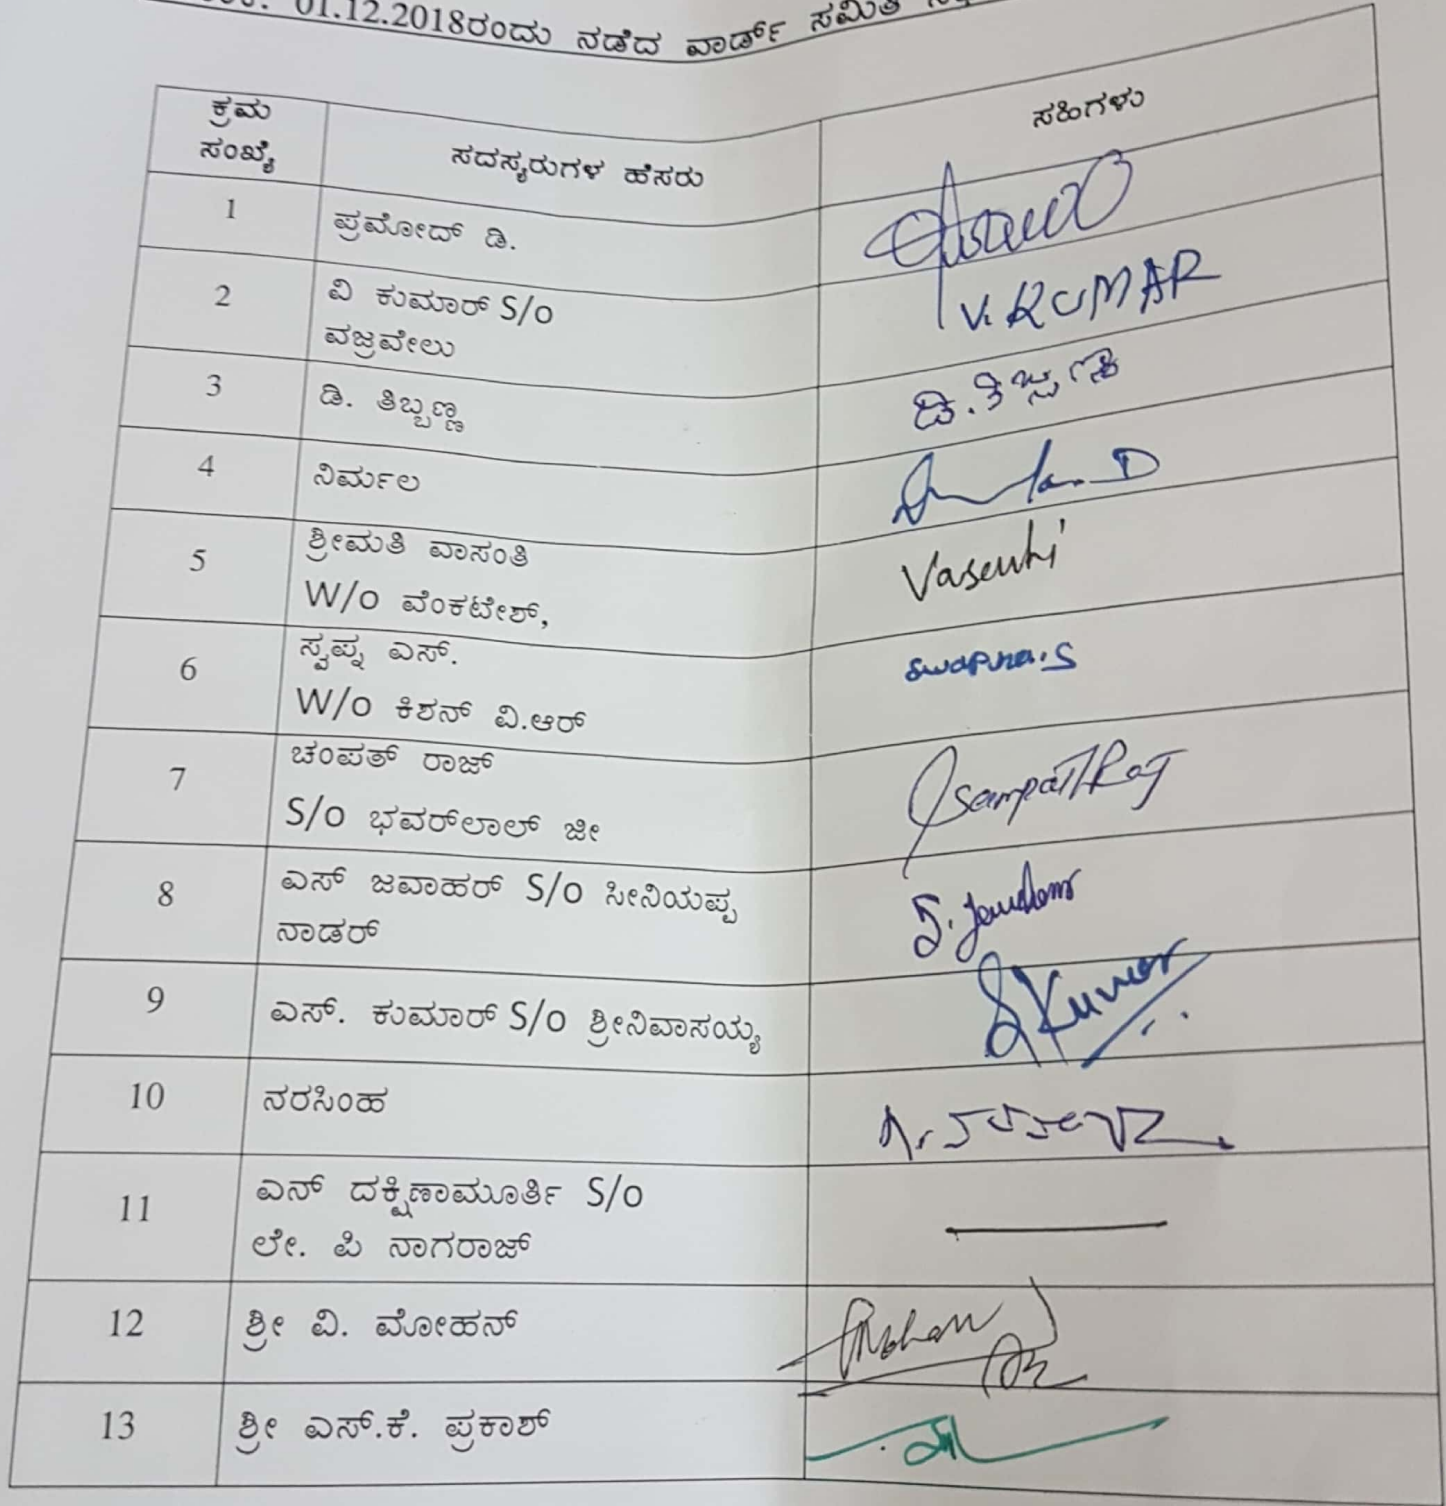 01.12.2018ರಂದು ನಡೆದ ವಾರ್ಡ್ ಸಮಿತಿ
ಕ್ರಮ
ಸಂಖ್ಯೆ
ಸದಸ್ಯರುಗಳ ಹೆಸರು
ಸಹಿಗಳು
1 ಪ್ರಮೋದ್ ಡಿ.
2 ವಿ ಕುಮಾರ್ S/o
ವಜ್ರವೇಲು
V. KUMAR
3 ಡಿ. ತಿಬ್ಬಣ್ಣ
4 ನಿರ್ಮಲ
5 ಶ್ರೀಮತಿ ವಾಸಂತಿ
W/o ವೆಂಕಟೇಶ್,
Vasenthi
6 ಸ್ವಪ್ನ ಎಸ್.
W/o ಕಿಶನ್ ವಿ.ಆರ್
Swapna.S
7 ಚಂಪತ್ ರಾಜ್
S/o ಭವರ್‌ಲಾಲ್ ಜೀ
SampatRaj
8 ಎಸ್ ಜವಾಹರ್ S/o ಸೀನಿಯಪ್ಪ
ನಾಡರ್
9 ಎಸ್. ಕುಮಾರ್ S/o ಶ್ರೀನಿವಾಸಯ್ಯ
S Kumar
10 ನರಸಿಂಹ
11 ಎನ್ ದಕ್ಷಿಣಾಮೂರ್ತಿ S/o
ಲೇ. ಪಿ ನಾಗರಾಜ್
12 ಶ್ರೀ ವಿ. ಮೋಹನ್
Mohan
13 ಶ್ರೀ ಎಸ್.ಕೆ. ಪ್ರಕಾಶ್